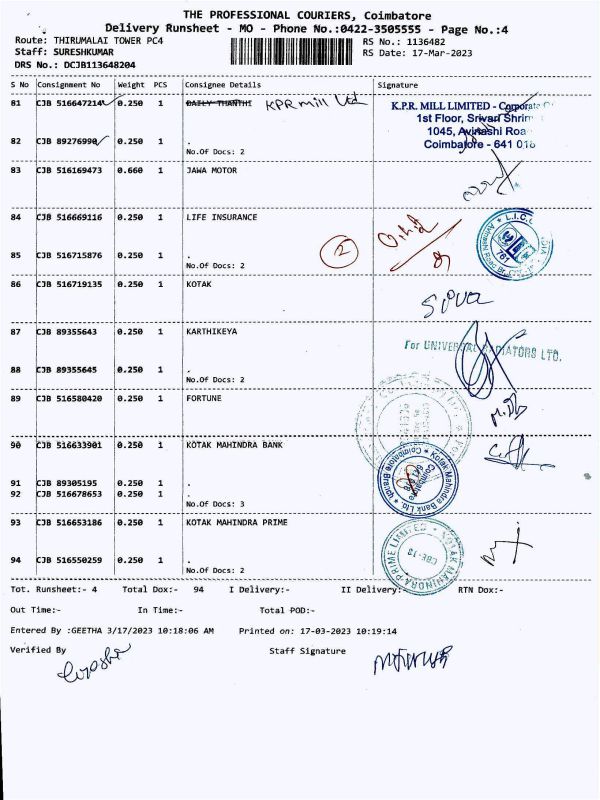 THE PROFESSIONAL COURIERS, Coimbatore
Delivery Runsheet - MO - Phone No.:0422-3505555 - Page No.:4
Route: THIRUMALAI TOWER PC4 RS No.: 1136482
Staff: SURESHKUMAR RS Date: 17-Mar-2023
DRS No.: DCJB113648204
S No Consignment No Weight PCS Consignee Details Signature
81 CJB 516647214 0.250 1 DAILY THANTHI KPR Mill Ltd
K.P.R. MILL LIMITED - Corporate
1st Floor, Srivari Shrim
1045, Avinashi Roa
Coimbatore - 641 018
82 CJB 89276990 0.250 1 .
No.Of Docs: 2
83 CJB 516169473 0.660 1 JAWA MOTOR
84 CJB 516669116 0.250 1 LIFE INSURANCE
2
L.I.C.
761
85 CJB 516715876 0.250 1 .
No.Of Docs: 2
86 CJB 516719135 0.250 1 KOTAK
Siva
87 CJB 89355643 0.250 1 KARTHIKEYA
For UNIVERSAL RADIATORS LTD.
88 CJB 89355645 0.250 1 .
No.Of Docs: 2
89 CJB 516580420 0.250 1 FORTUNE
90 CJB 516633901 0.250 1 KOTAK MAHINDRA BANK
Kotak Mahindra Bank Ltd
Coimbatore Branch
Coimbatore
91 CJB 89305195 0.250 1 .
92 CJB 516678653 0.250 1 .
No.Of Docs: 3
93 CJB 516653186 0.250 1 KOTAK MAHINDRA PRIME
KOTAK MAHINDRA PRIME LIMITED
CBE-18
94 CJB 516550259 0.250 1 .
No.Of Docs: 2
Tot. Runsheet:- 4 Total Dox:- 94 I Delivery:- II Delivery:- RTN Dox:-
Out Time:- In Time:- Total POD:-
Entered By :GEETHA 3/17/2023 10:18:06 AM Printed on: 17-03-2023 10:19:14
Verified By Staff Signature